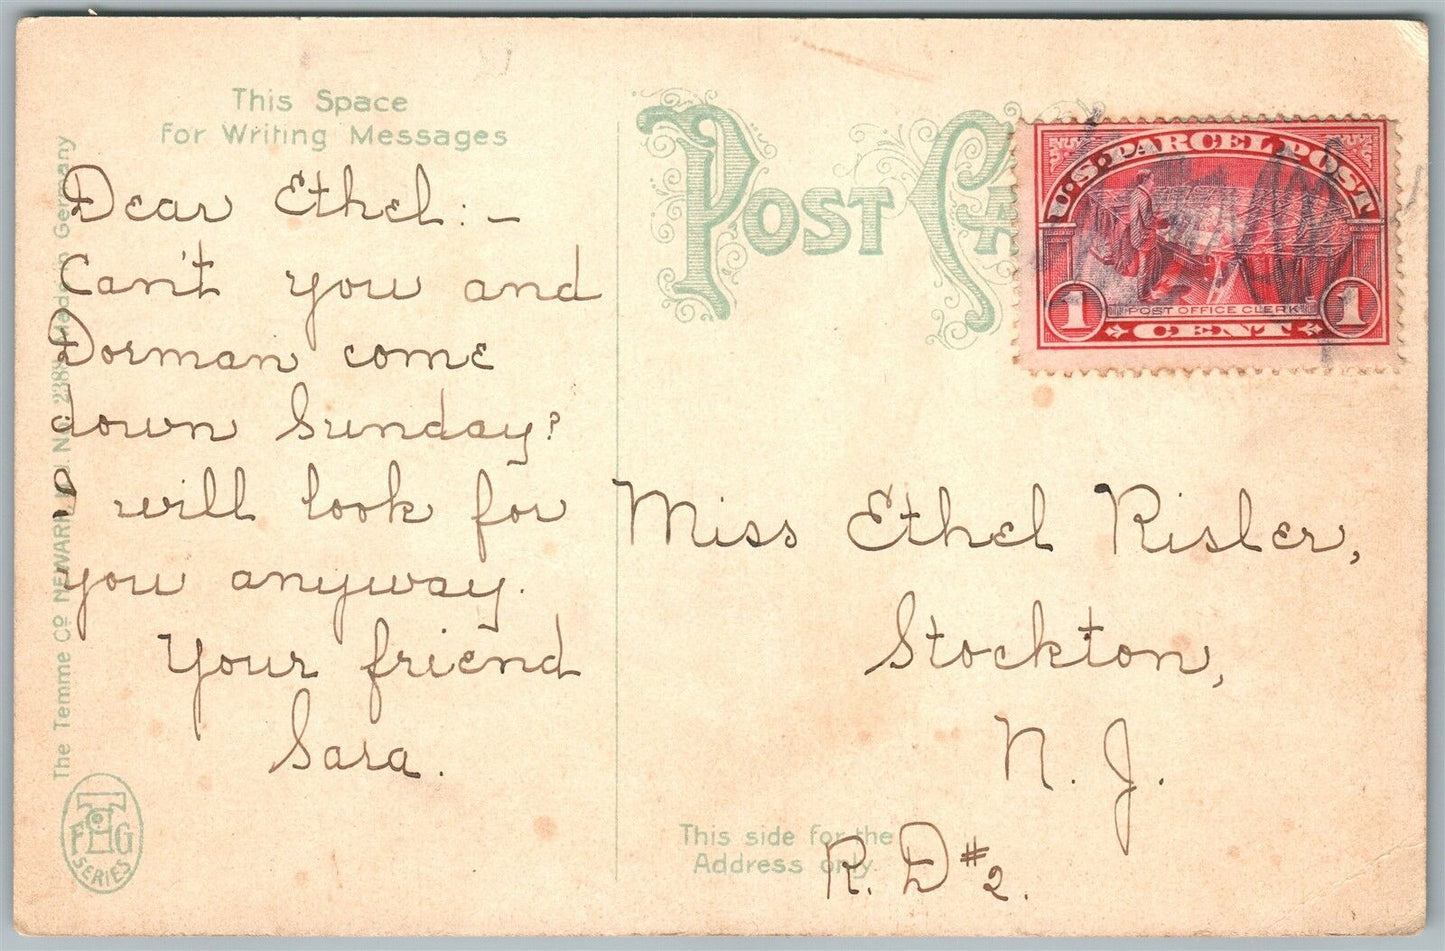 This Space
For Writing Messages
Dear Ethel:—
Can't you and
Dorman come
down Sunday?
I will look for
you anyway.
Your friend
Sara.
The Temme Co NEWARK N.J. No. 2388 Made in Germany
FTG
SERIES
POST CA
U.S. PARCEL POST
POST OFFICE CLERK
1 CENT 1
Miss Ethel Risler,
Stockton,
N. J.
This side for the
Address only.
R. D #2.